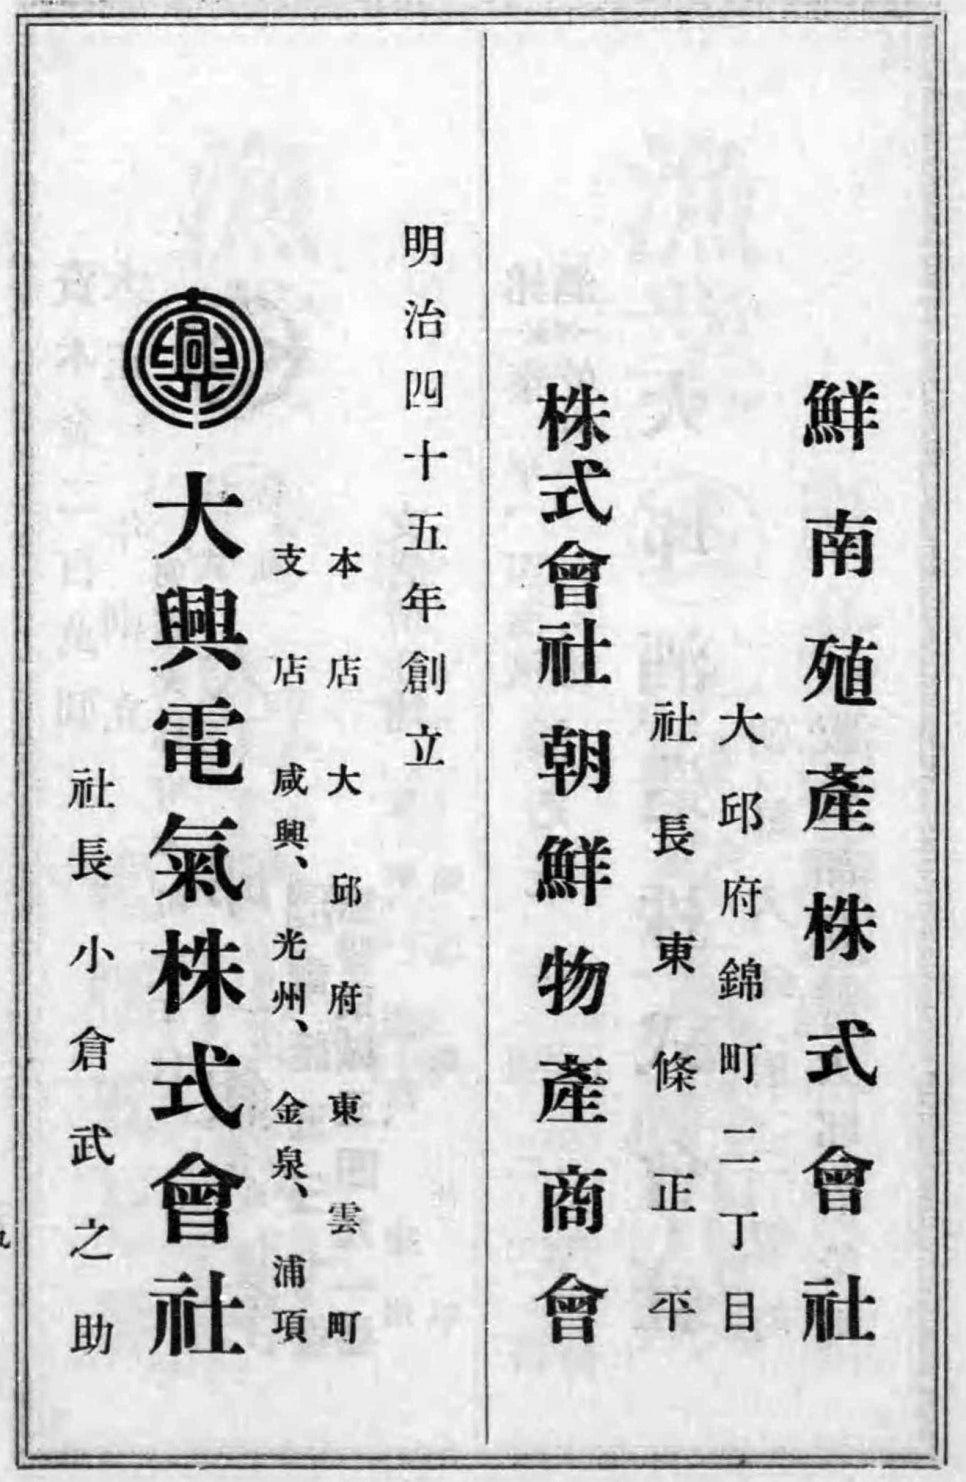 鮮南殖產株式會社
大邱府錦町二丁目
社長東條正平
株式會社朝鮮物產商會
明治四十五年創立
本店大邱府東雲町
支店咸興、光州、金泉、浦項
大興電氣株式會社
社長小倉武之助